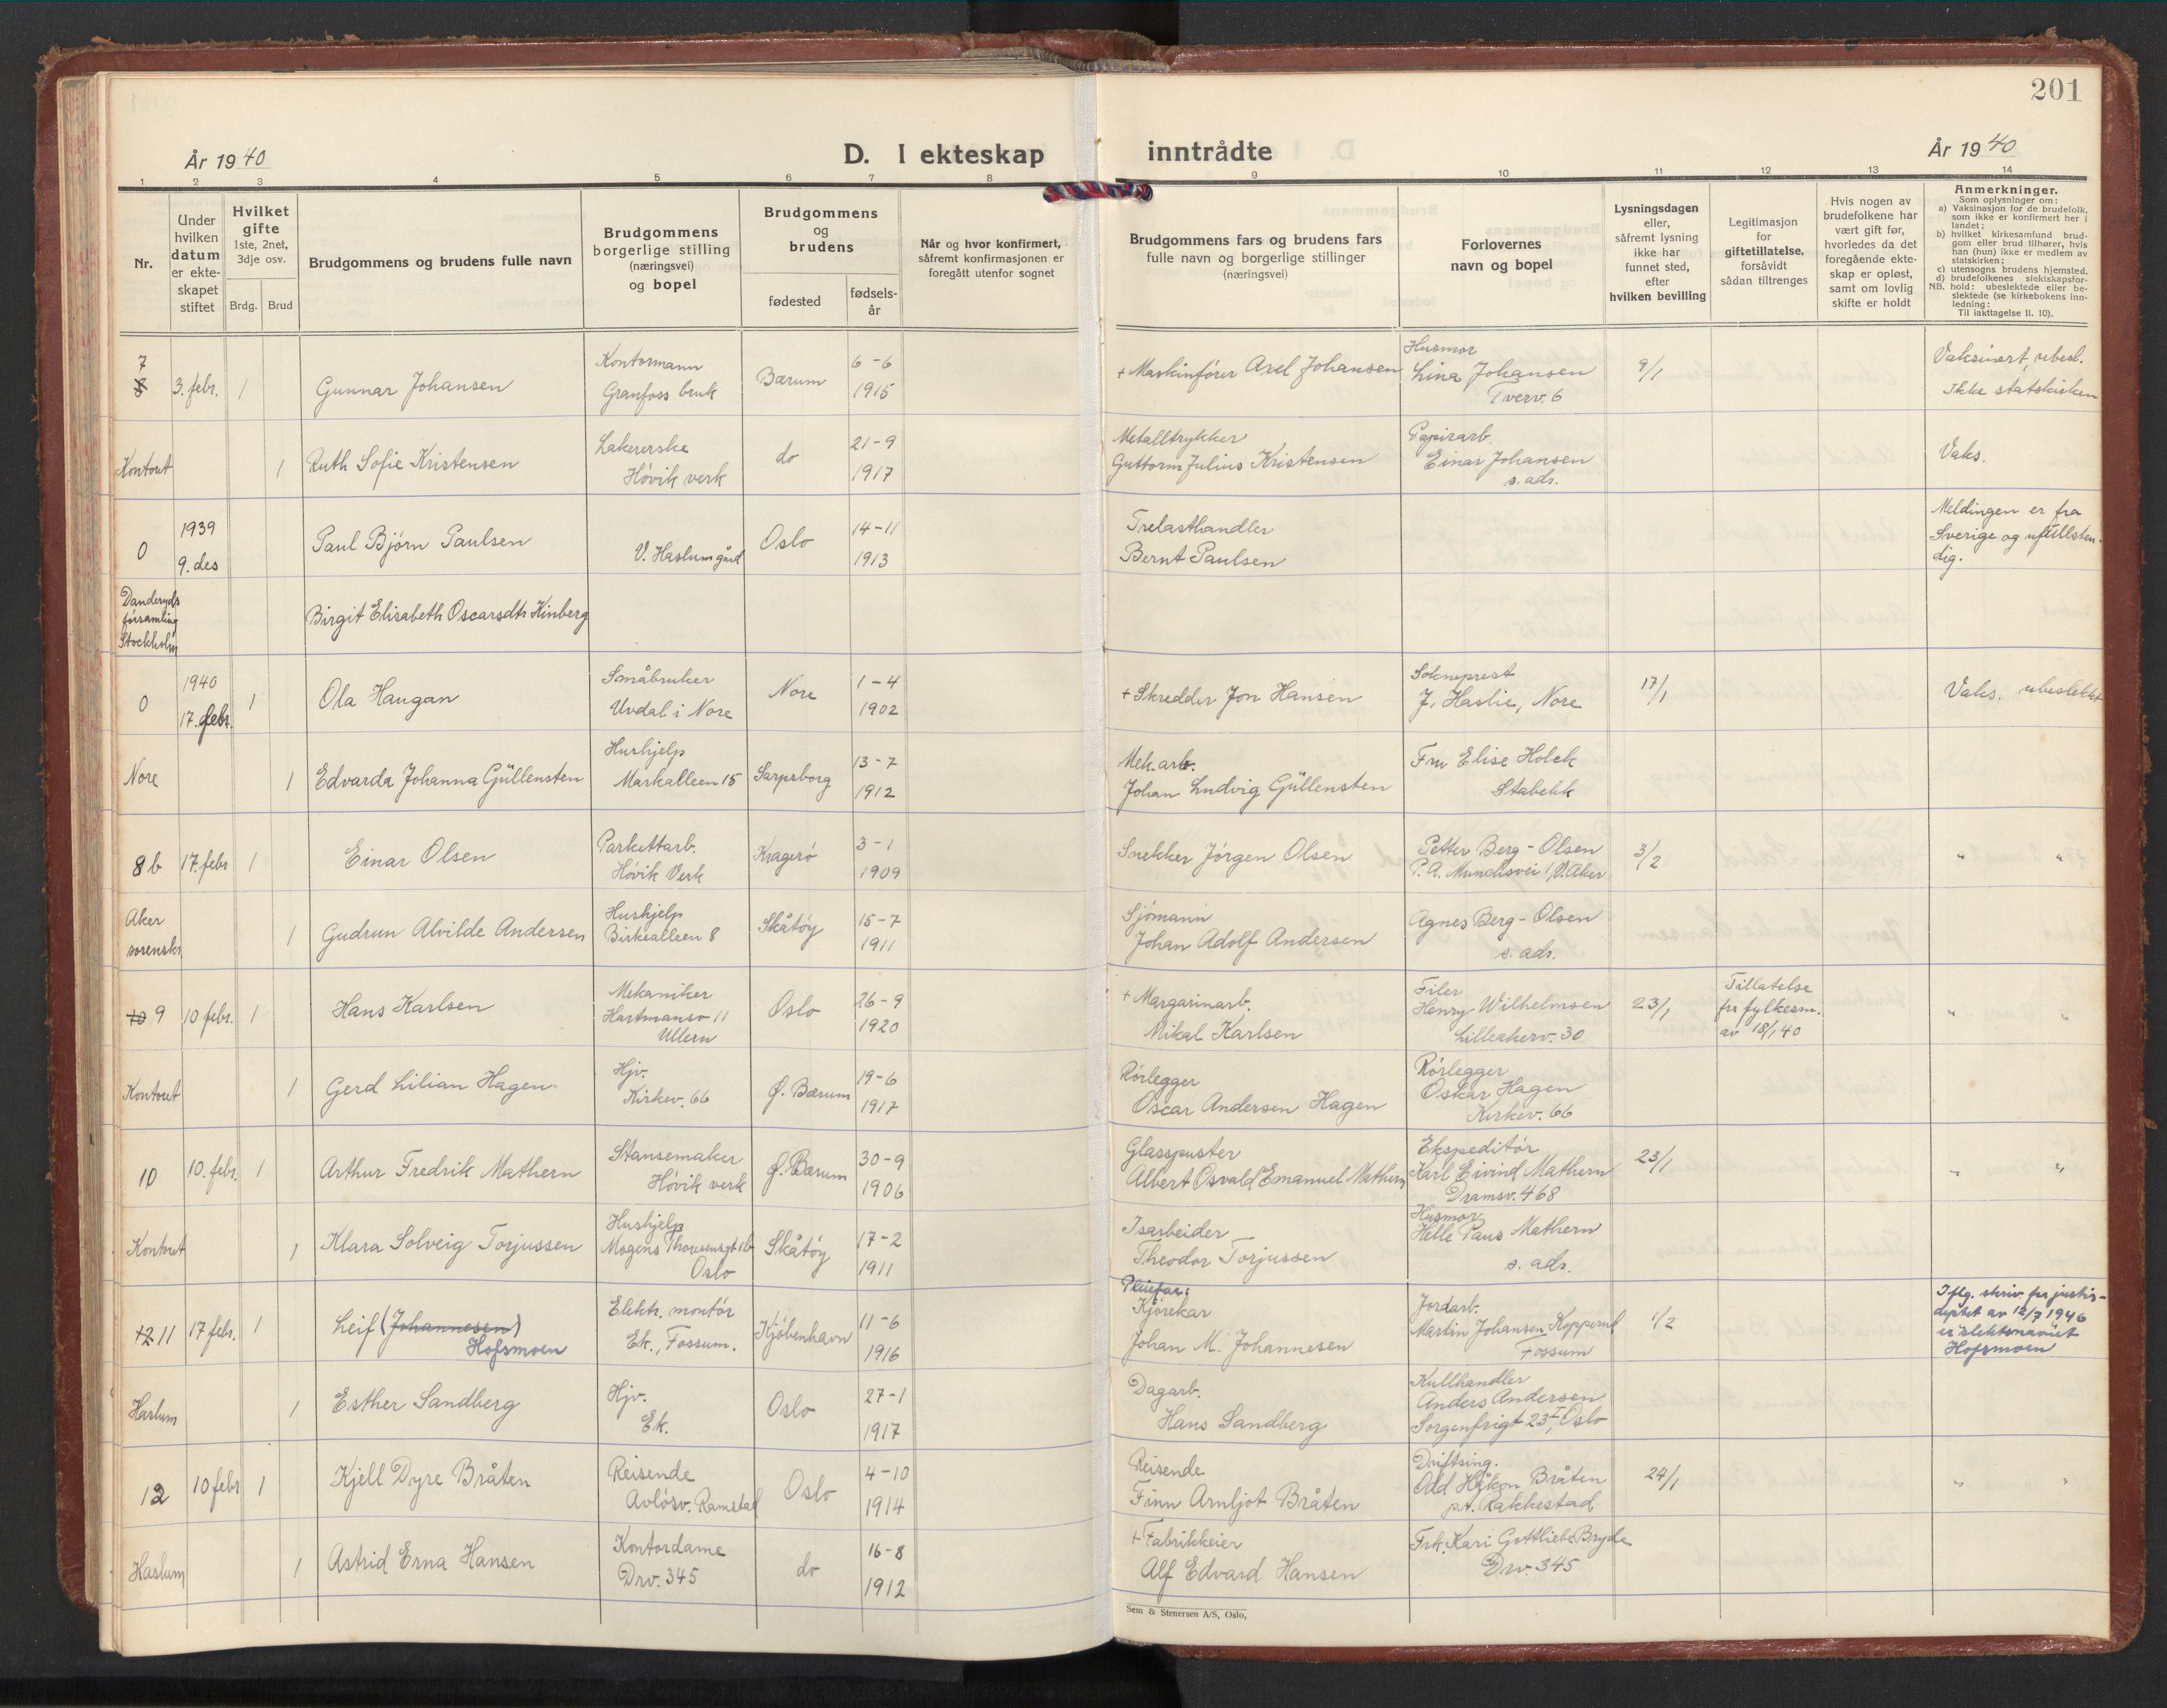 201
År 1940
D. I ekteskap inntrådte
År 1940
1 2 3 4 5 6 7 8 9 10 11 12 13 14
Nr.
Under
hvilken
datum
er ekte-
skapet
stiftet
Hvilket
gifte
1ste, 2net,
3dje osv.
Brdg. Brud
Brudgommens og brudens fulle navn
Brudgommens
borgerlige stilling
(næringsvei)
og bopel
Brudgommens
og
brudens
fødested
fødsels-
år
Når og hvor konfirmert,
såfremt konfirmasjonen er
foregått utenfor sognet
Brudgommens fars og brudens fars
fulle navn og borgerlige stillinger
(næringsvei)
Forlovernes
navn og bopel
Lysningsdagen
eller,
såfremt lysning
ikke har
funnet sted,
efter
hvilken bevilling
Legitimasjon
for
giftetillatelse,
forsåvidt
sådan tiltrenges
Hvis nogen av
brudefolkene har
vært gift før,
hvorledes da det
foregående ekte-
skap er opløst,
samt om lovlig
skifte er holdt
Anmerkninger.
Som oplysninger om:
a) Vaksinasjon for de brudefolk,
som ikke er konfirmert her i
landet;
b) hvilket kirkesamfund brud-
gom eller brud tilhører, hvis
han (hun) ikke er medlem av
statskirken;
c) utensogns brudens hjemsted.
d) brudefolkenes slektskapsfor-
NB. hold: ubeslektede eller be-
slektede (se kirkebokens inn-
ledning:
Til iakttagelse II. 10).
7
8 3. febr. 1
Gunnar Johansen
Kontormann
Granfoss bruk
Bærum
6-6
1915
+ Maskinfører Axel Johansen
Husmor
Lina Johansen
Tverv. 6
9/1
Vaksinert, ubesl.
Ikke statskirken
Kontoret 1
Ruth Sofie Kristensen
Lakererske
Høvik verk
do
21-9
1917
Metalltrykker
Guttorm Julius Kristensen
Papirarb.
Einar Johansen
s. adr.
Vaks.
0
1939
9. des
Paul Bjørn Paulsen
V. Haslum gård
Oslo
14-11
1913
Trelasthandler
Bernt Paulsen
Meldingen er fra
Sverige og ufullsten-
dig.
Danderyds
församling
Stockholm
Birgit Elisabeth Oscarsdtr Kinberg
0
1940
17. febr. 1
Ola Haugan
Småbruker
Uvdal i Nore
Nore
1-4
1902
+ Skredder Jon Hansen
Sokneprest
J. Haslie, Nore
17/1
Vaks. ubeslektet
Nore 1
Edvarda Johanna Güllensten
Hushjelp
Markalleen 15
Sarpsborg
13-7
1912
Mek. arb.
Johan Ludvig Güllensten
Fru Elise Holck
Stabekk
8b 17. febr 1
Einar Olsen
Parkettarb.
Høvik Verk
Kragerø
3-1
1909
Snekker Jörgen Olsen
Petter Berg-Olsen
P. A. Munchsvei 1, V. Aker
3/2
" "
Aker
sorenskr. 1
Gudrun Alvilde Andersen
Hushjelp
Birkealleen 8
Skåtøy
15-7
1911
Sjömann
Johan Adolf Andersen
Agnes Berg-Olsen
s. adr.
10 9 10 febr. 1
Hans Karlsen
Mekaniker
Hartmansv 11
Ullern
Oslo
26-9
1920
+ Margarinarb.
Mikal Karlsen
Filer
Henry Wilhelmsen
Lilleakerv. 30
23/1
Tillatelse
fra fylkesm.
av 18/1 40
" "
Kontoret 1
Gerd Lilian Hagen
Hjv.
Kirkev. 66
Ø. Bærum
19-6
1917
Rörlegger
Oscar Andersen Hagen
Rörlegger
Oskar Hagen
Kirkev. 66
10 10. febr. 1
Arthur Fredrik Mathern
Stansemaker
Høvik verk
Ø. Bærum
30-9
1906
Glasspuster
Albert Osvald Emanuel Mathern
Ekspeditør
Karl Eivind Mathern
Dramsv. 468
23/1
" "
Kontoret 1
Klara Solveig Torjussen
Hushjelp
Mogens Thorsensgt 1b
Oslo
Skåtøy
17-2
1911
Isarbeider
Theodor Torjussen
Husmor
Helle Paus Mathern
s. adr.
12 11 17 febr. 1
Leif (Johannesen)
Hofsmoen
Elektr. montør
Ek., Fossum.
Kjøbenhavn
11-6
1916
Pleiefar:
Kjørekar
Johan M. Johannesen
Jordarb.
Martin Johansen Kopperud
Fossum
1/2
Iflg. skriv fra justis-
deptet av 12/7 1946
er slektsnavnet
Hofsmoen
Haslum 1
Esther Sandberg
Hjv.
Ek.
Oslo
27-1
1917
Dagarb.
Hans Sandberg
Kullhandler
Anders Andersen
Sorgenfrigt 23 I, Oslo
12 10 febr 1
Kjell Dyre Bråten
Reisende
Avløsv. Ramstad
Oslo
4-10
1914
Reisende
Finn Arnljot Bråten
Driftsing.
Odd Håkon Bråten
p.t. Rakkestad
24/1
" "
Haslum 1
Astrid Erna Hansen
Kontordame
Drv. 345
do
16-8
1912
+ Fabrikkeier
Alf Edvard Hansen
Frk. Kari Gottlieb Bryde
Drv. 345
Sem & Stenersen A/S, Oslo.